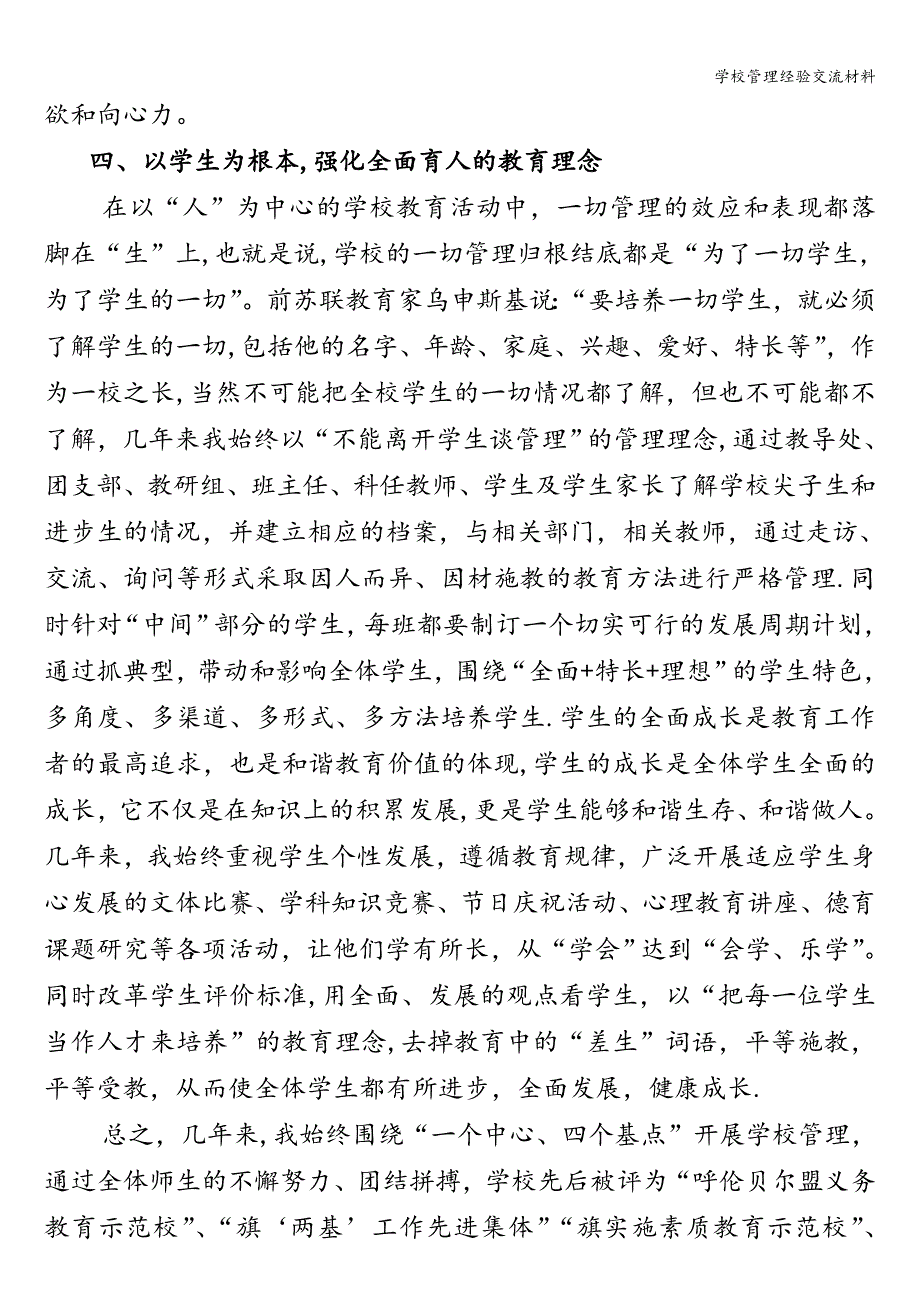 学校管理经验交流材料
欲和向心力。
四、以学生为根本,强化全面育人的教育理念
在以“人”为中心的学校教育活动中，一切管理的效应和表现都落
脚在“生”上,也就是说,学校的一切管理归根结底都是“为了一切学生，
为了学生的一切”。前苏联教育家乌申斯基说:“要培养一切学生，就必须
了解学生的一切,包括他的名字、年龄、家庭、兴趣、爱好、特长等”，作
为一校之长,当然不可能把全校学生的一切情况都了解，但也不可能都不
了解，几年来我始终以“不能离开学生谈管理”的管理理念,通过教导处、
团支部、教研组、班主任、科任教师、学生及学生家长了解学校尖子生和
进步生的情况，并建立相应的档案，与相关部门，相关教师，通过走访、
交流、询问等形式采取因人而异、因材施教的教育方法进行严格管理.同
时针对“中间”部分的学生,每班都要制订一个切实可行的发展周期计划，
通过抓典型，带动和影响全体学生，围绕“全面+特长+理想”的学生特色，
多角度、多渠道、多形式、多方法培养学生.学生的全面成长是教育工作
者的最高追求，也是和谐教育价值的体现,学生的成长是全体学生全面的
成长，它不仅是在知识上的积累发展,更是学生能够和谐生存、和谐做人。
几年来，我始终重视学生个性发展，遵循教育规律，广泛开展适应学生身
心发展的文体比赛、学科知识竞赛、节日庆祝活动、心理教育讲座、德育
课题研究等各项活动，让他们学有所长，从“学会”达到“会学、乐学”。
同时改革学生评价标准,用全面、发展的观点看学生，以“把每一位学生
当作人才来培养”的教育理念,去掉教育中的“差生”词语，平等施教，
平等受教，从而使全体学生都有所进步，全面发展，健康成长.
总之，几年来,我始终围绕“一个中心、四个基点”开展学校管理，
通过全体师生的不懈努力、团结拼搏，学校先后被评为“呼伦贝尔盟义务
教育示范校”、“旗‘两基’工作先进集体”“旗实施素质教育示范校”、